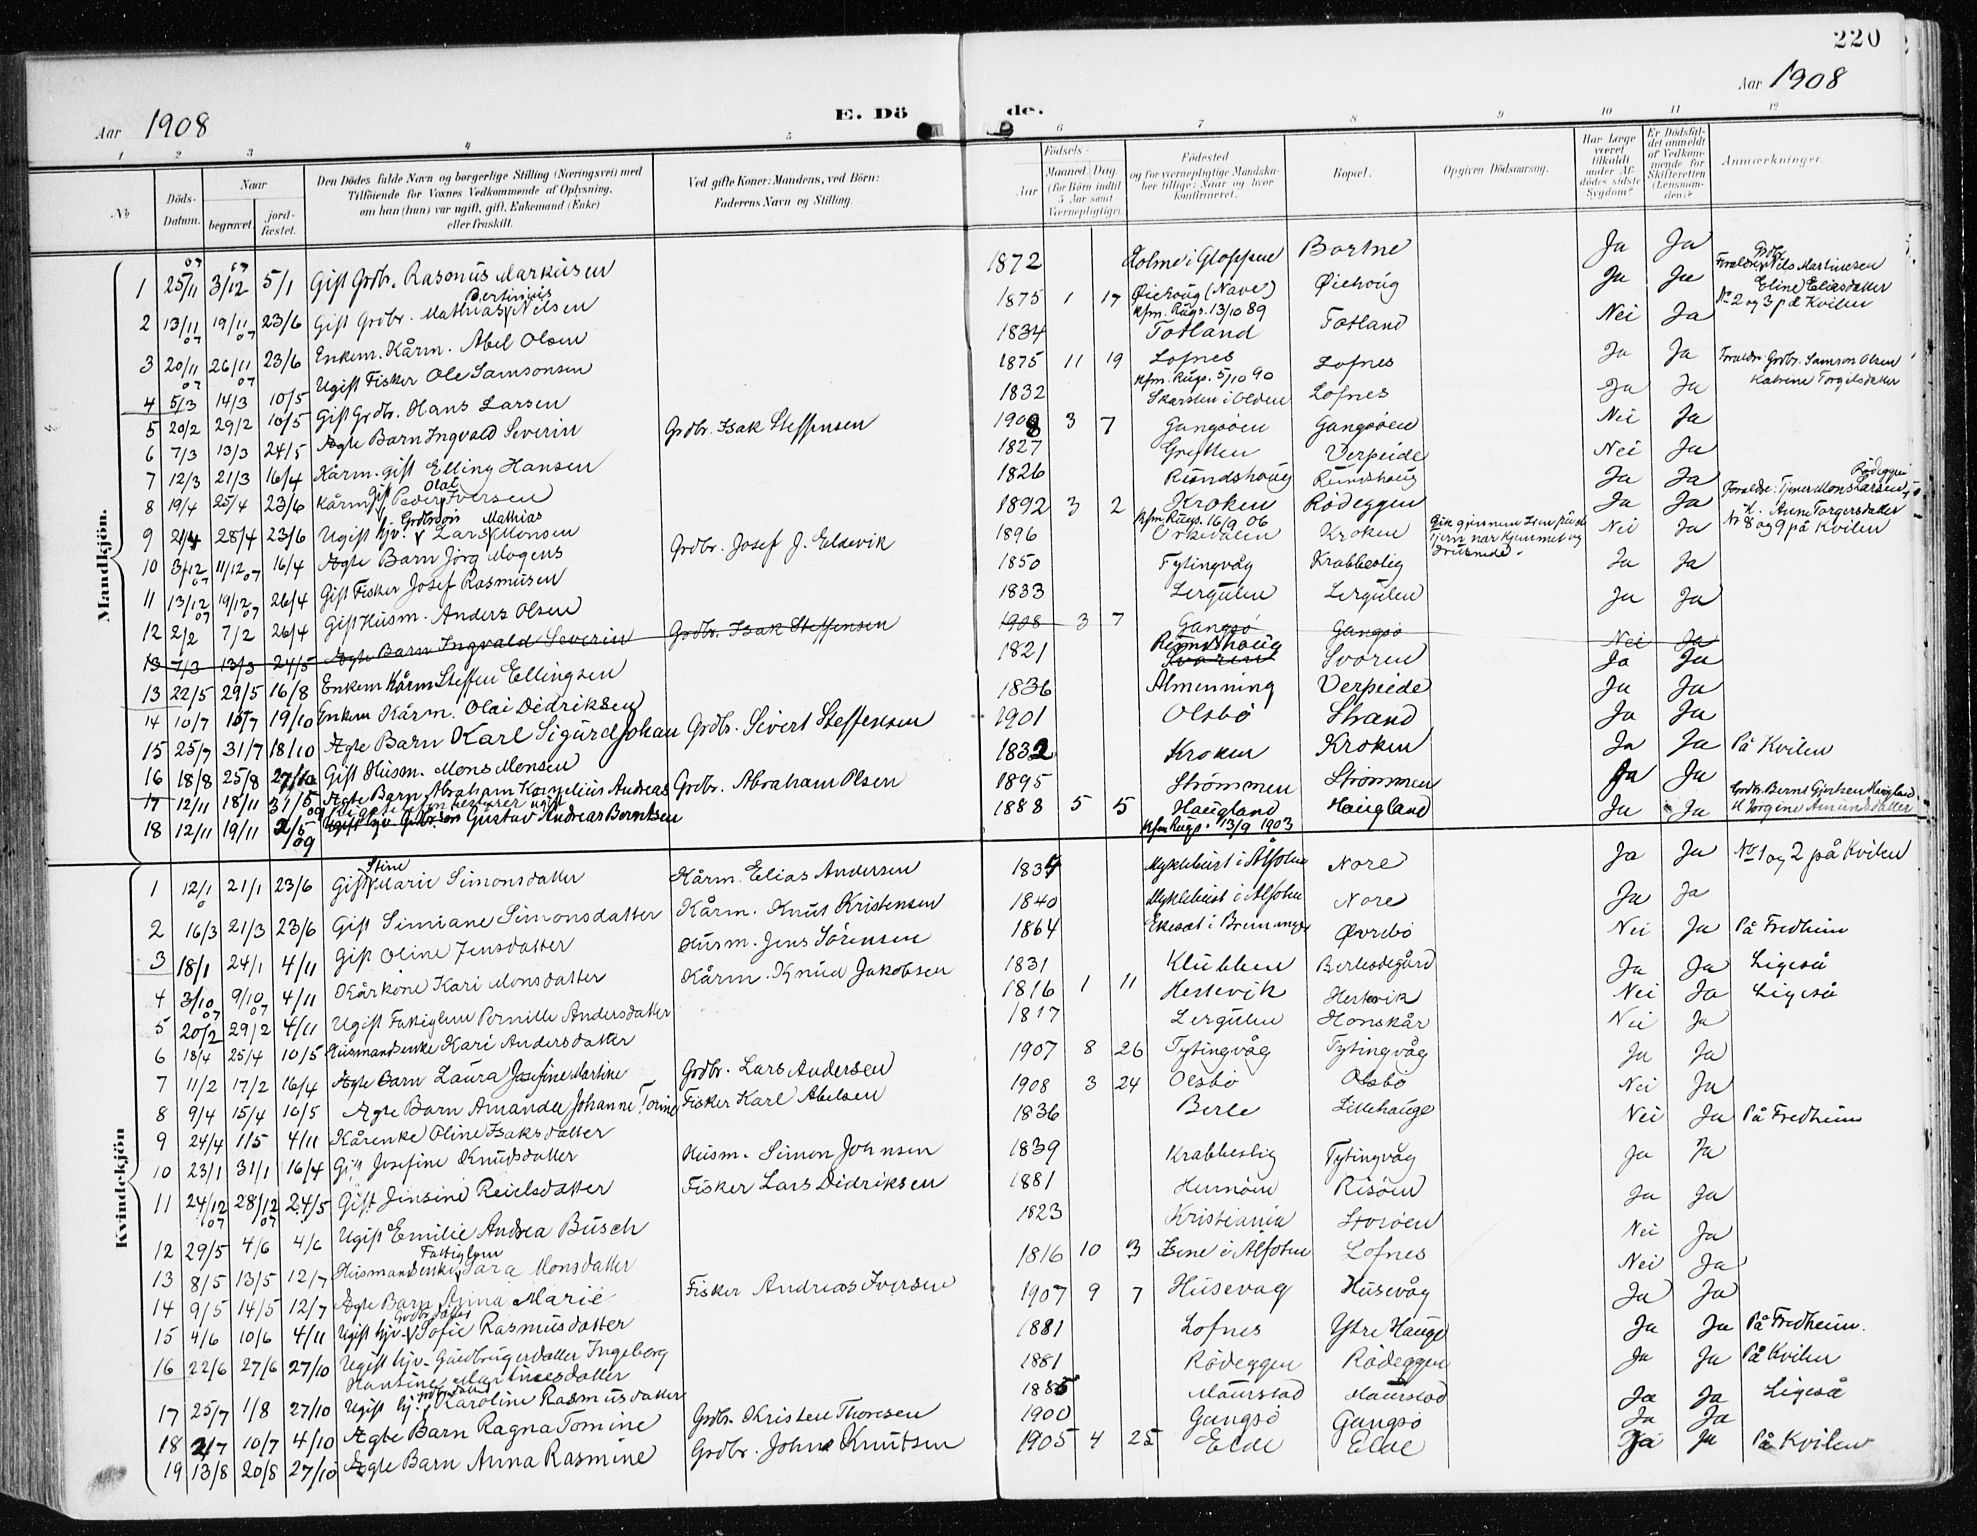 220
Aar 1908
E. Dö de.
Aar 1908
1 2 3 4 5 6 7 8 9 10 11 12
No
Döds-Datum.
Naar begravet jordfæstet.
Den Dödes fulde Navn og borgerlige Stilling (Næringsvei) med Tilföiende for Voxnes Vedkommende af Oplysning, om han (hun) var ugift, gift, Enkemand (Enke) eller fraskilt.
Ved gifte Koner: Mandens, ved Börn: Faderens Navn og Stilling.
Födsels- Aar Maaned Dag (for Börn indtil 5 Aar samt Værnepligtige).
Födested og for værnepligtige Mandskaber tillige: Naar og hvor konfirmeret.
Bopæl.
Opgiven Dödsaarsag.
Har Læge været tilkaldt under Afdödes sidste Sygdom?
Er Dödsfaldet anmeldt af Vedkommende for Skifteretten (Lensmanden)?
Anmærkninger.
Mandkjön.
1 25/11 07 3/12 07 5/1 Gift Grdbr. Rasmus Markusen 1872 Holme i Gloppen Bortne Ja Ja
2 13/11 07 19/11 07 23/6 Gift Grdbr. Mathias Bertinius Nilsen 1875 1 17 Øiehoug (Nave) Kfm. Rugs. 13/10 89 Øiehoug Ja Ja Forældre: Grdbr. Nils Martinesen Eline Eliasdatter No 2 og 3 på Kvilen
3 20/11 07 26/11 07 23/6 Enkem. Kårm. Abel Olsen 1834 Totland Totland Nei Ja
4 5/3 14/3 10/5 Ugift Fisker Ole Samsonsen 1875 11 19 Lofnes Kfm. Rugs. 5/10 90 Lofnes Ja Ja Forældre: Grdbr. Samson Olsen Katrine Torgilsdatter
5 20/2 29/2 10/5 Gift Grdbr. Hans Larsen 1832 Skarsten i Olden Lofnes Ja Ja
6 7/3 13/3 24/5 Ægte Barn Ingvald Severin Grdbr. Isak Steffensen 1908 3 7 Gangsøen Gangsøen Nei Ja
7 12/3 21/3 16/4 Kårm. gift Elling Hansen 1827 Verpeide Nei Ja
8 19/4 25/4 23/6 Kårm. gift Peder Olai Iversen 1826 Rundshoug Rundshoug Ja Ja
9 2/4 28/4 23/6 Ugift hjv. Grdbrsøn Lars Mathias Monsen 1892 3 2 Kroken Kfm. Rugs. 16/9 06 Rødeggen Ja Ja Forældre: Tjener Mons Larsen, Rødeggen H. Anne Torgersdatter No 8 og 9 på Kvilen
10 3/12 07 11/12 07 16/4 Ægte Barn Jörg Mogens Grdbr. Josef J. Eldevik 1896 Orkedalen Kroken Gik gjennem Isen på et tjern nær hjemmet og druknede. Nei Ja
11 13/12 07 19/12 07 26/4 Gift Fisker Josef Rasmusen 1850 Tytingvåg Krabbestig Ja Ja
12 2/2 7/2 26/4 Gift Husm. Anders Olsen 1833 Lergulen Lergulen Ja Ja
13 7/3 13/3 24/5 Ægte Barn Ingvald Severin Grdbr. Isak Steffensen 1908 3 7 Gangsø Gangsø Nei Ja
13 22/5 29/5 16/8 Enkem Kårm Steffen Ellingsen 1821 Svoren Rundshoug Svoren Ja Ja
14 10/7 16/7 19/10 Enkem Kårm. Olai Didriksen 1836 Almenning Verpeide Ja Ja
15 25/7 31/7 18/10 Ægte Barn Karl Sigurd Johan Grdbr. Sivert Steffensen 1901 Olsbø Strand Ja Ja
16 18/8 25/8 27/10 Gift Husm. Mons Monsen 1832 Kroken Kroken Ja Ja På Kvilen
17 12/11 18/11 31/5 09 Ægte Barn Abraham Kornelius Andreas Grdbr. Abraham Olsen 1895 Strømmen Strømmen Ja Ja
18 12/11 19/11 2/5 09 Gustav Andreas Berntsen 1888 5 5 Haugland Kfm Rugs. 13/9 1903 Haugland Ja Ja Grdbr. Bernt Gjertsen Haugland H Jörgine Amundsdatter
Kvindekjön
1 12/1 21/1 23/6 Gift Stine Marie Simonsdatter Kårm. Elias Andersen 1834 Myklebust i Ålfoten Nore Ja Ja No 1 og 2 på Kvilen
2 16/3 21/3 23/6 Gift Simiane Simonsdatter Kårm. Knut Kristensen 1840 Myklebust i Ålfoten Nore Ja Ja
3 18/1 24/1 4/11 Gift Oline Jensdatter Husm. Jens Sörensen 1864 Øvrebø Nei Ja På Fredheim
4 3/10 07 9/10 07 4/11 Kårkone Kari Monsdatter Kårm. Knud Jakobsen 1831 Klubben Berlesdegård Ja Ja Ligeså
5 20/2 29/2 4/11 Ugift Fattiglem Pernille Andersdatter 1816 1 11 Hestevik Hestevik Nei Ja Ligeså
6 18/4 25/4 10/5 Husmandsenke Kari Andersdatter 1817 Lergulen Honskår Nei Ja
7 11/2 17/2 16/4 Ægte Barn Laura Josefine Martine Grdbr. Lars Andersen 1907 8 26 Tytingvåg Tytingvåg Ja Ja
8 9/4 15/4 10/5 Ægte Barn Amanda Johanne Torine Fisker Karl Abelsen 1908 3 24 Olsbø Olsbø Nei Ja
9 24/4 1/5 4/11 Kårenke Oline Isaksdatter 1836 Berle Lillehauge Nei Ja På Fredheim
10 23/1 31/1 16/4 Gift Josefine Knudsdatter Husm. Simon Johnsen 1839 Krabbestig Tytingvåg Ja Ja
11 24/12 07 28/12 07 24/5 Gift Jensine Reielsdatter Fisker Lars Didriksen 1881 Hennöen Risöen Ja Ja
12 29/5 4/6 4/6 Ugift Emilie Andrea Busch 1823 Kristiania Storöen Nei Ja
13 8/5 13/5 12/7 Husmandsenke Fattiglem Sara Monsdatter 1816 10 3 Isene i Ålfoten Lofnes Nei Ja
14 9/5 14/5 12/7 Ægte Barn Anna Marie Fisker Andreas Iversen 1907 9 7 Husevåg Husevåg Ja Ja
15 4/6 10/6 4/11 Ugift hjv. Grdbr.datter Sofie Rasmusdatter 1881 Lofnes Ytre Hauge Ja Ja På Fredheim.
16 22/6 27/6 27/10 Ugift hjv. Gårdbrugerdatter Ingeborg Hansine Martinesdatter 1881 Rødeggen Rødeggen Ja Ja På Kvilen
17 25/7 1/8 27/10 Ugift hj. Karoline Rasmusdatter 1885 Maurstad Maurstad Ja Ja Ligeså
18 2/7 10/7 4/10 Ægte Barn Ragna Tomine Grdbr. Kristen Thoresen 1900 Gangsø Gangsø Ja Ja
19 13/8 20/8 27/10 Ægte Barn Anna Rasmine Grdbr. Johna Knutsen 1905 4 25 Elde Elde Ja Ja På Kvilen